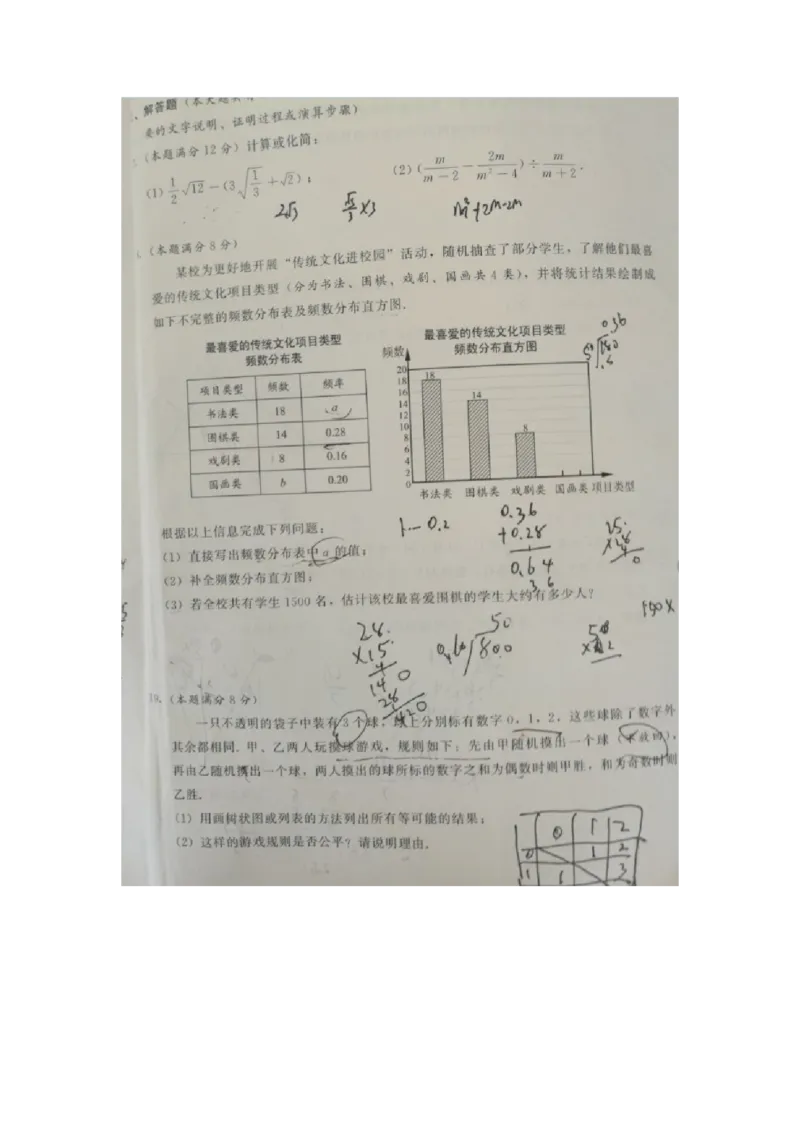 解答题（本大题
要的文字说明、证明过程或演算步骤）
（本题满分 12 分）计算或化简：
(1) 1/2 √12 －(3√(1/3) ＋√2)； (2) (m/(m－2) － 2m/(m²－4)) ÷ m/(m＋2)．
2√3 √3/3 ×3 m²+2m-2m
（本题满分 8 分）
某校为更好地开展“传统文化进校园”活动，随机抽查了部分学生，了解他们最喜
爱的传统文化项目类型（分为书法、围棋、戏剧、国画共 4 类），并将统计结果绘制成
如下不完整的频数分布表及频数分布直方图．
最喜爱的传统文化项目类型
频数分布表
项目类型 频数 频率
书法类 18 a
围棋类 14 0.28
戏剧类 8 0.16
国画类 b 0.20
最喜爱的传统文化项目类型
频数分布直方图
频数
20
18
16
14
12
10
8
6
4
2
0
18
14
8
书法类 围棋类 戏剧类 国画类 项目类型
0.36
根据以上信息完成下列问题：
(1) 直接写出频数分布表中 a 的值；
(2) 补全频数分布直方图；
(3) 若全校共有学生 1500 名，估计该校最喜爱围棋的学生大约有多少人？
1-0.2
0.36
+0.28
0.64
36
28
×15
140
28
420
50
800
19.（本题满分 8 分）
一只不透明的袋子中装有 3 个球，球上分别标有数字 0，1，2，这些球除了数字外
其余都相同．甲、乙两人玩摸球游戏，规则如下：先由甲随机摸出一个球（不放回），
再由乙随机摸出一个球，两人摸出的球所标的数字之和为偶数时则甲胜，和为奇数时则
乙胜．
(1) 用画树状图或列表的方法列出所有等可能的结果；
(2) 这样的游戏规则是否公平？请说明理由．
0 1 2
0 1 2
1 1 3